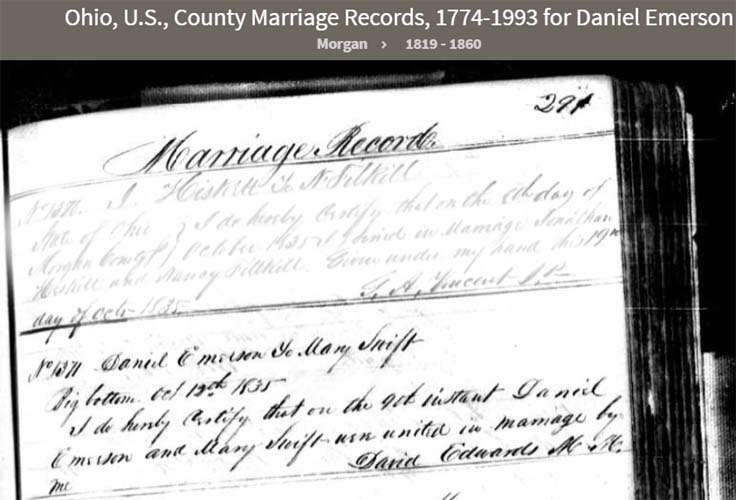 Ohio, U.S., County Marriage Records, 1774-1993 for Daniel Emerson
Morgan > 1819 - 1860
291
Marriage Record.
No 1370. J. Hiskett To N Tilkill
State of Ohio } I do hereby Certify that on the 8th day of
Morgan County } October 1835 I joined in Marriage Jonathan
Hiskett and Nancy Tillkill. Given under my hand this 19th
day of Octr 1835. S. A. Vincent J. P.
No 1371 Daniel Emerson To Mary Swift
Big bottom Oct 12th 1835
I do hereby Certify that on the 9th instant Daniel
Emerson and Mary Swift were united in marriage by
me David Edwards M. M.